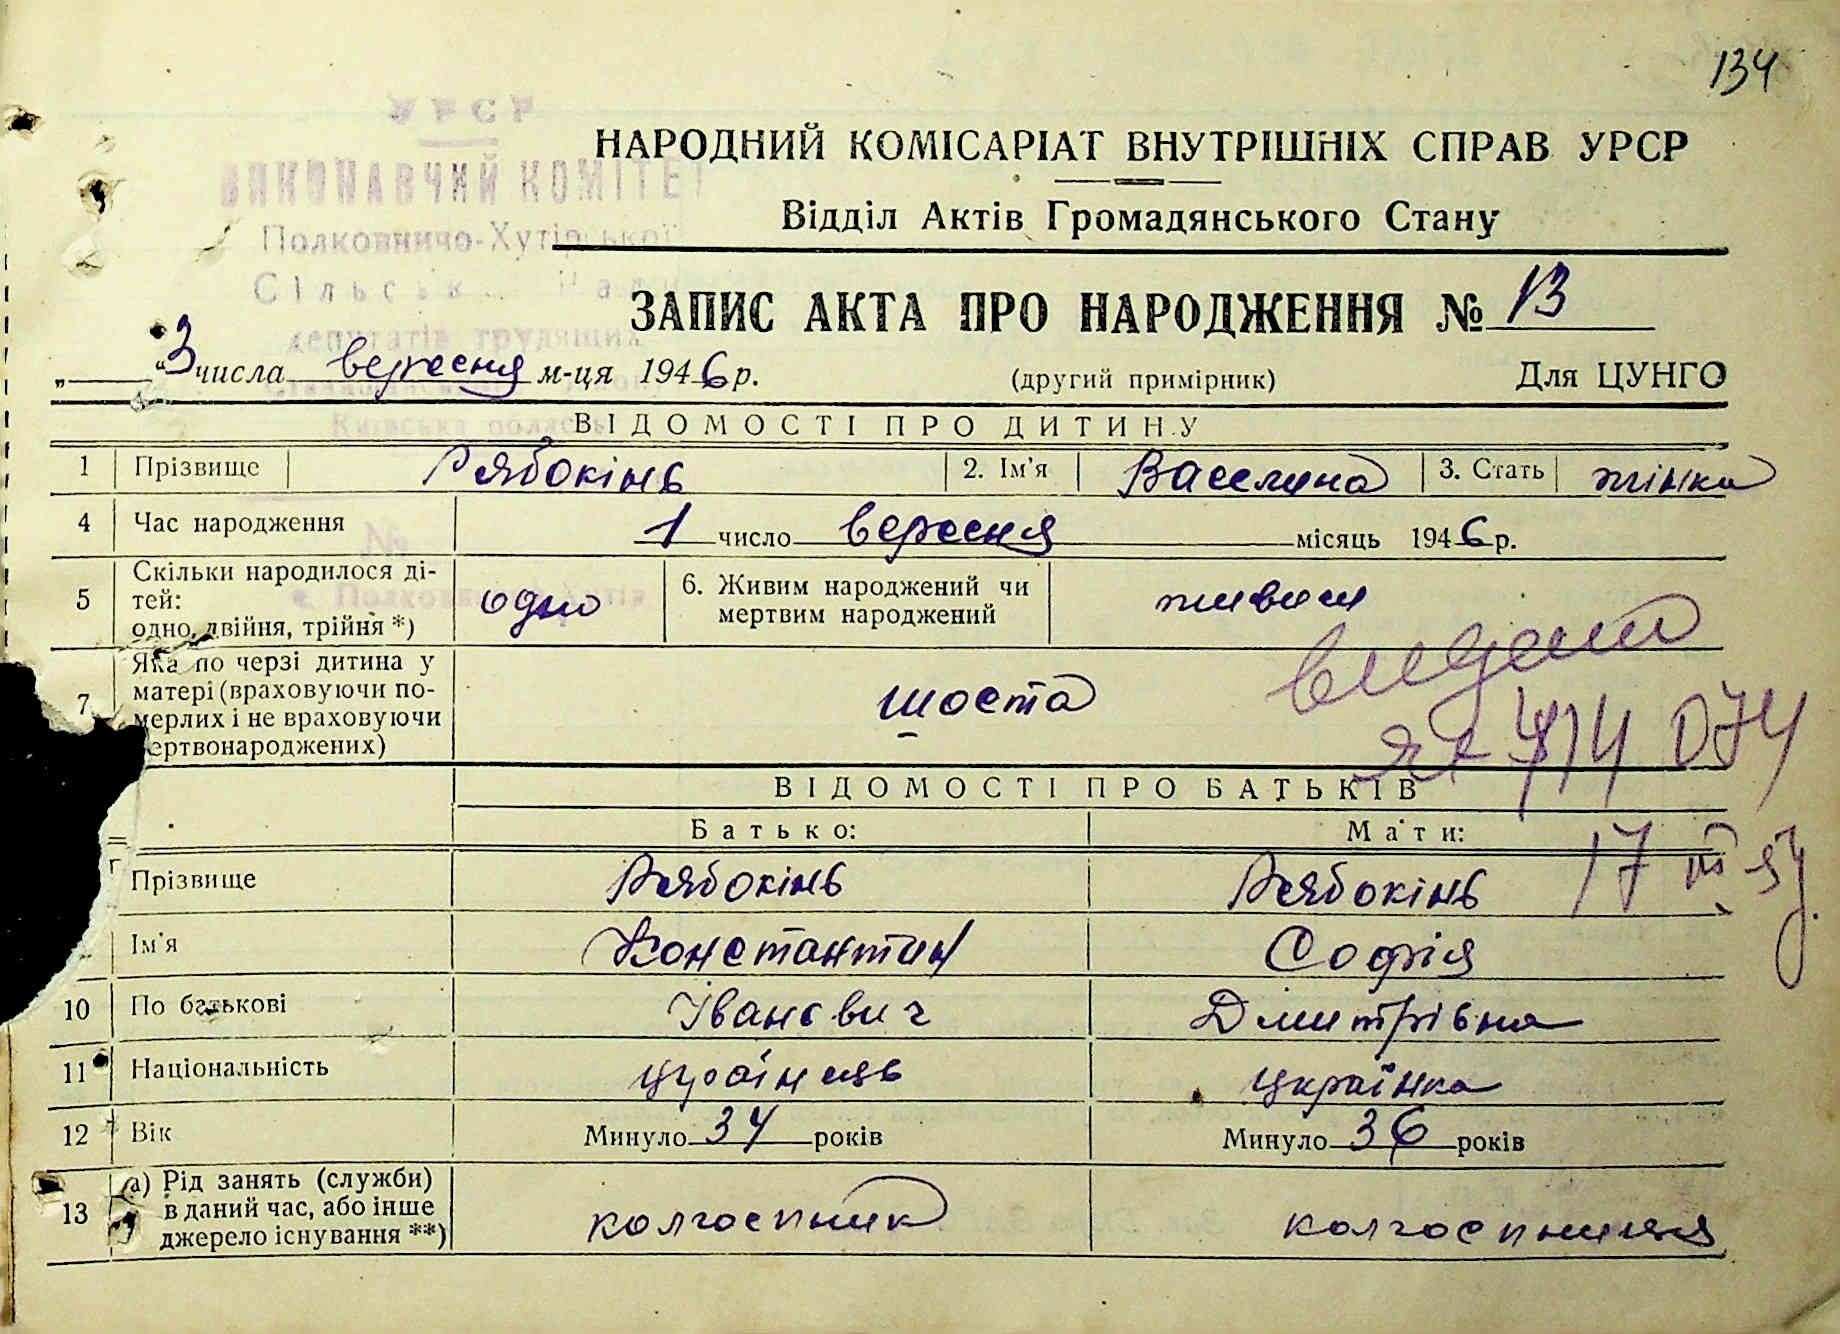 134
УРСР
ВИКОНАВЧИЙ КОМІТЕТ
Полковничо-Хутірської
Сільської Ради
депутатів трудящих
Київська область
№
НАРОДНИЙ КОМІСАРІАТ ВНУТРІШНІХ СПРАВ УРСР
Відділ Актів Громадянського Стану
ЗАПИС АКТА ПРО НАРОДЖЕННЯ № 13
„ “ 3 числа вересня м-ця 1946 р. (другий примірник) Для ЦУНГО
ВІДОМОСТІ ПРО ДИТИНУ
1 Прізвище Рябокінь 2. Ім'я Василина 3. Стать жінка
4 Час народження 1 число вересня місяць 1946 р.
5 Скільки народилося ді-
тей:
одно, двійня, трійня *) одно 6. Живим народжений чи
мертвим народжений живим
7 Яка по черзі дитина у
матері (враховуючи по-
мерлих і не враховуючи
мертвонароджених) шоста
видано
074
17
ВІДОМОСТІ ПРО БАТЬКІВ
Батько: Мати:
Прізвище Рябокінь Рябокінь
Ім'я Константин Софія
10 По батькові Іванович Дмитрівна
11 Національність українець українка
12 Вік Минуло 34 років Минуло 36 років
13 а) Рід занять (служби)
в даний час, або інше
джерело існування **) колгоспник колгоспниця